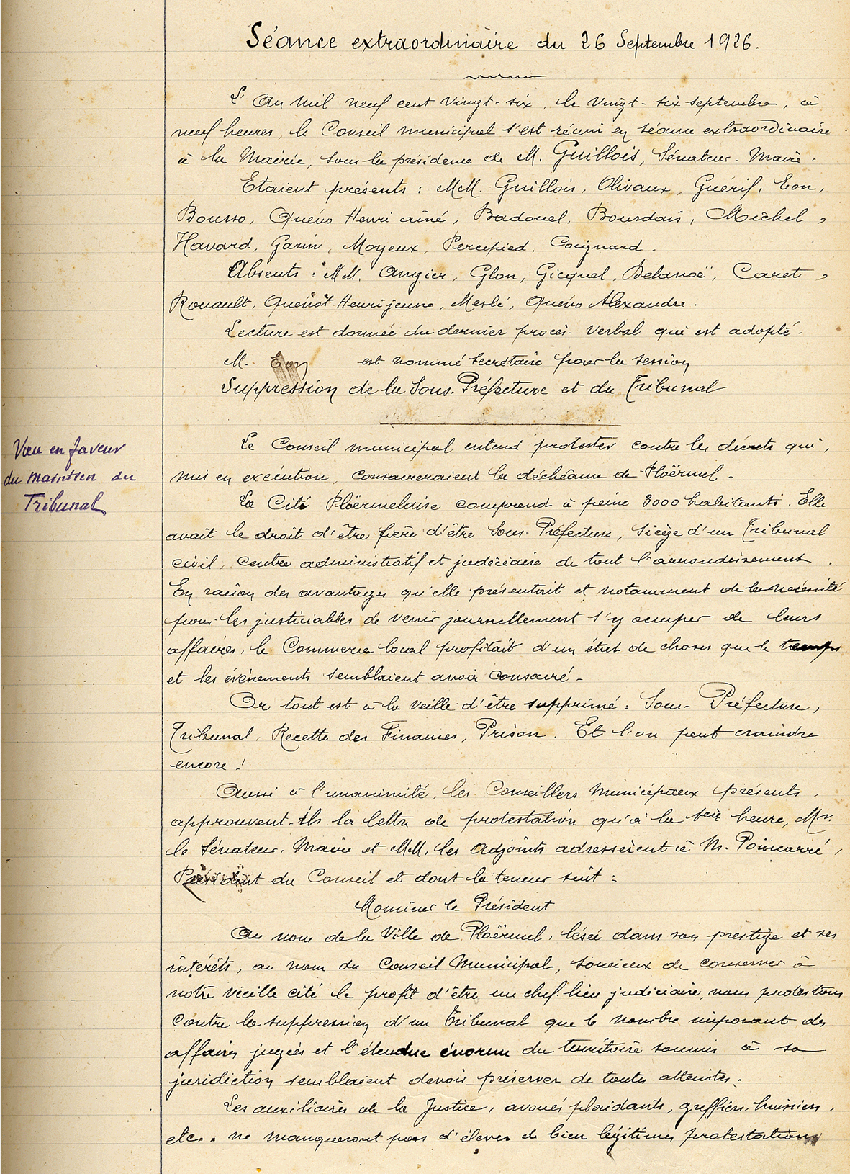 Séance extraordinaire du 26 Septembre 1926.
L'An mil neuf cent vingt-six, le vingt-six septembre, à
neuf heures, le Conseil municipal s'est réuni en séance extraordinaire
à la Mairie, sous la présidence de M. Guillois, Sénateur-Maire.
Etaient présents : MM. Guillois, Olivaux, Guérif, Eon,
Bousso, Henri aîné, Badouel, Bourdais, Michel,
Havard, Garin, Moyeux, Percepied, Coignard.
Absents : MM. Augier, Glon, Gicquel, Delanoë, Caret,
Rouault, Henri jeune, Merlé, Alexandre.
Lecture est donnée du dernier procès verbal qui est adopté.
M. Eon est nommé secrétaire pour la session
Suppression de la Sous-Préfecture et du Tribunal
Vœu en faveur
du maintien du
Tribunal
Le Conseil municipal entend protester contre les décrets qui,
mis en exécution, consacreraient la déchéance de Ploërmel.
La Cité Ploërmelaise comprend à peine 3000 habitants. Elle
avait le droit d'être fière d'être Sous-Préfecture, siège d'un Tribunal
civil, centre administratif et judiciaire de tout l'arrondissement.
En raison des avantages qu'elle présentait et notamment de la nécessité
pour les justiciables de venir journellement s'y occuper de leurs
affaires, le Commerce local profitait d'un état de choses que le temps
et les événements semblaient avoir consacré.
Or tout est à la veille d'être supprimé : Sous-Préfecture,
Tribunal, Recette des Finances, Prison. Et l'on peut craindre
encore !
Aussi à l'unanimité, les Conseillers Municipaux présents,
approuvent-ils la lettre de protestation qu'à la 1ère heure, Mr
le Sénateur-Maire et MM. les Adjoints adressèrent à M. Poincarré,
Président du Conseil et dont la teneur suit :
Monsieur le Président
Au nom de la Ville de Ploërmel, lésée dans son prestige et ses
intérêts, au nom du Conseil Municipal, soucieux de conserver à
notre vieille cité le profit d'être un chef lieu judiciaire, nous protestons
contre la suppression d'un Tribunal que le nombre imposant des
affaires jugées et l'étendue énorme du territoire soumis à sa
juridiction semblaient devoir préserver de toute atteinte.
Les auxiliaires de la Justice, avoués plaidants, greffiers, huissiers,
etc, ne manqueront pas d'élever de bien légitimes protestations